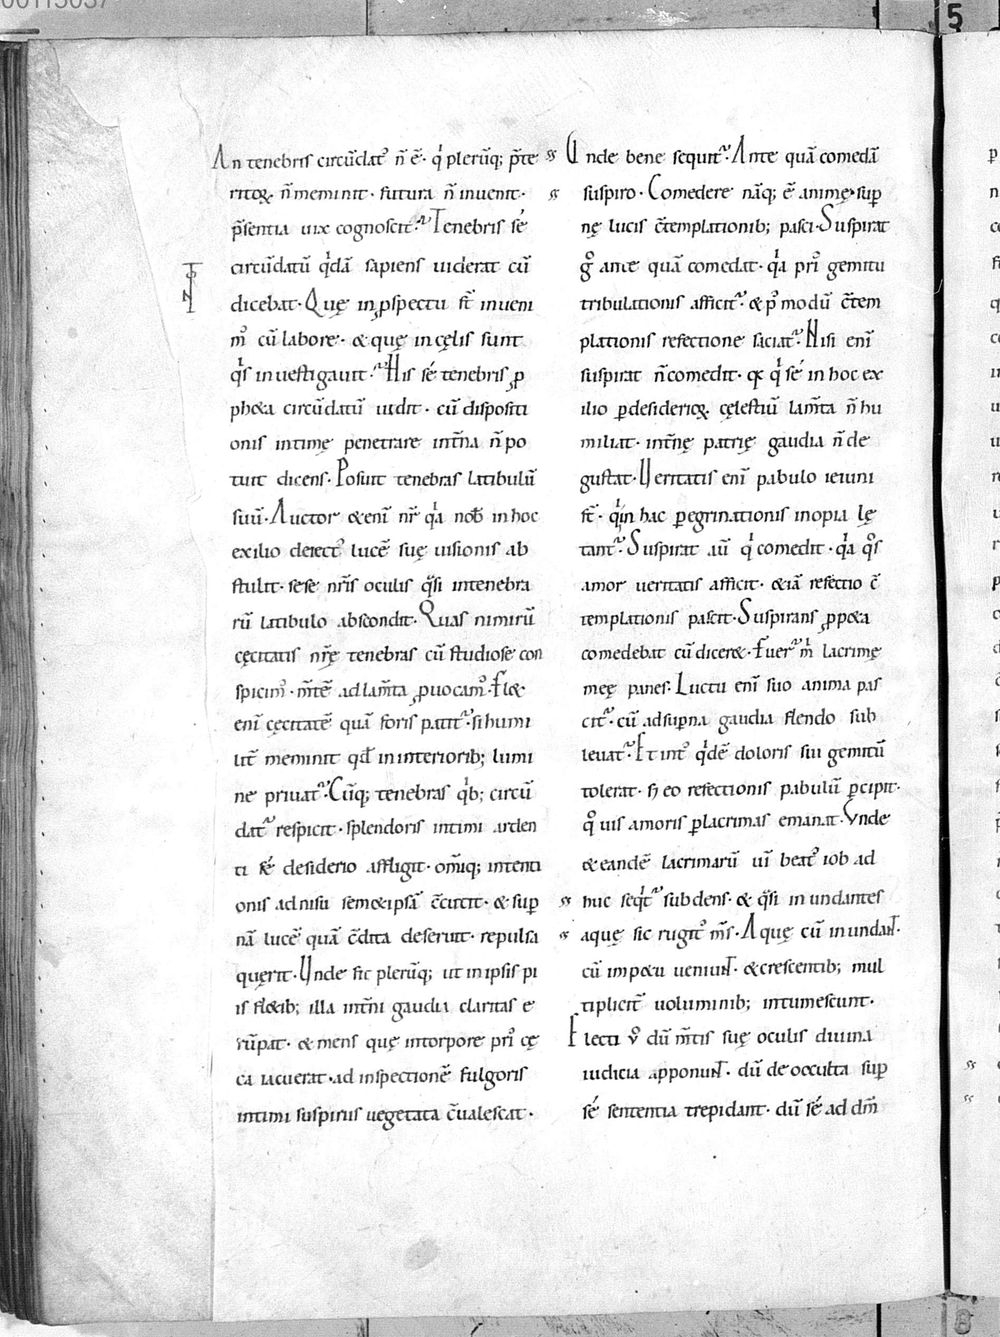 00113037
5
An tenebris circūdat᷒ n̄ ē· q̇ plerūq; p̄te
ritoꝝ n̄ meminit· futura n̄ inuenit·
p̄sentia uix cognoscit· Tenebris sé
circūdatū q̇dā sapiens uiderat cū
dicebat· Quę in ꝓspectu st̄ inueni
m᷒ cū labore· & quę in cęlis sunt
q̇s inuestigauit· His sé tenebris ꝓ
ph&a circūdatū uidit· cū dispositi
onis intimę penetrare int̄na n̄ po
tuit dicens· Posuit tenebras latibulū
suū· Auctor &enī nr̄ q̇a nob̄ in hoc
exilio deiect᷒ lucē suę uisionis ab
stulit· sese nr̄is oculis q̊si intenebra
rū latibulo abscondit· Quas nimirū
cęcitatis nr̄ę tenebras cū studiose con
spicim᷒· m̄tē ad lam̄ta ꝓuocam᷒· Fl&
enī cęcitatē quā foris patit᷒· si humi
lit̄ meminit qd̄ in interiorib; lumi
ne priuat᷒· Cūq; tenebras q̇b; circū
dat᷒ respicit· splendoris intimi arden
ti sé desiderio affligit· om̄iq; intenti
onis adnisu sem&ipsā c̄cutit· & sup
nā lucē quā c̄dita deseruit· repulsa
querit· Unde fit plerūq; ut in ipsis pi
is fl&ib; illa int̄ni gaudii claritas e
rūpat· & mens quę in torpore pri᷒ cę
ca iacuerat· ad inspectionē fulgoris
intimi suspiriis uegetata c̄ualescat·
Unde bene sequit᷒· Ante quā comedā
suspiro· Comedere nāq; ē animę· sup
nę lucis c̄templationib; pasci· Suspirat
g̊ ante quā comedat· q̇a pri᷒ gemitu
tribulationis afficit᷒ & p᷒modū c̄tem
plationis refectione saciat᷒· Nisi enī
suspirat n̄ comedit· q̇ sé in hoc ex
ilio ꝑ desiderioꝝ cęlestiū lam̄ta n̄ hu
miliat· int̄nę patrię gaudia n̄ de
gustat· Ueritatis enī pabulo ieiuni
st̄· q̇ in hac ꝑegrinationis inopia lę
tant᷒· Suspirat aū q̇ comedit· q̇a q̊s
amor ueritatis afficit· &iā refectio c̄
templationis pascit· Suspirans ꝓph&a
comedebat cū dicer&· Fuer᷒ ṁ lacrime
meę panes· Luctu enī suo anima pas
cit᷒· cū ad sup̄na gaudia flendo sub
leuat᷒· Et int᷒ q̇dē doloris sui gemitū
tolerat· s; eo refectionis pabulū ꝑcipit·
q̊ uis amoris ꝑ lacrimas emanat· Unde
& eandē lacrimarū uī beat᷒ iob ad
huc seq̇t᷒ subdens· & q̊si inundantes
aquę sic rugit᷒ m̄s· Aquę cū inundaNT·
cū imp&u ueniuNT· & crescentib; mul
tiplicit̄ uoluminib; intumescunt·
Electi v̊ dū m̄tis suę oculis diuina
iudicia apponuNT· dū de occulta sup
sé sententia trepidant· dū sé ad dm̄
8